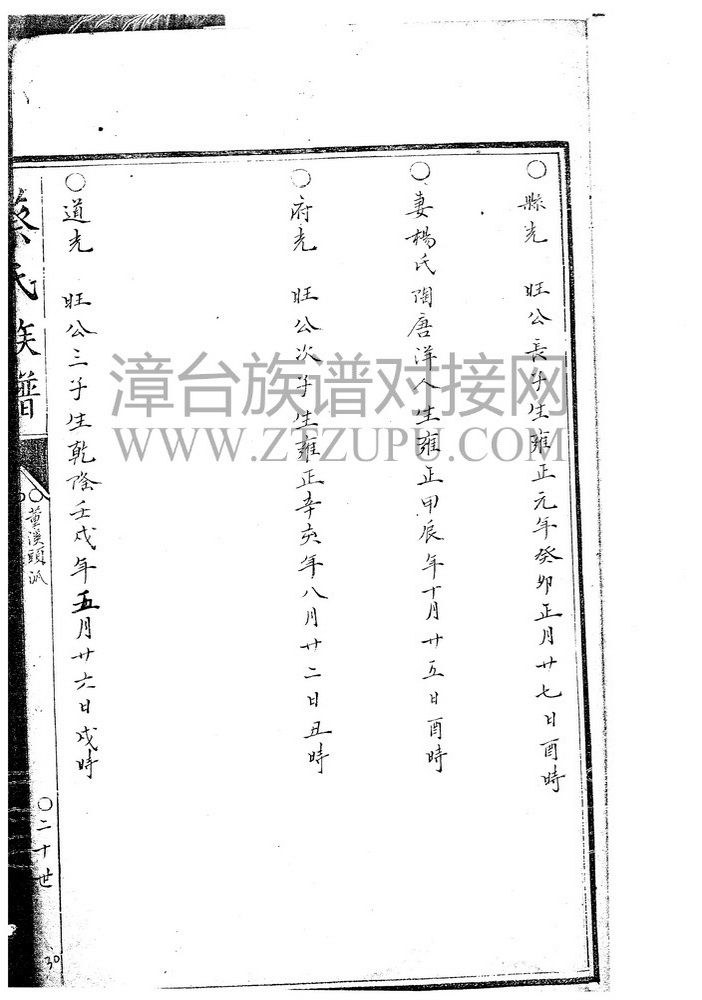 ○縣光 旺公長子生雍正元年癸卯正月廿七日酉時
○妻楊氏陶唐洋人生雍正甲辰年十月廿五日酉時
○府光 旺公次子生雍正辛亥年八月廿二日丑時
○道光 旺公三子生乾隆壬戌年五月廿六日戌時
蔡氏族譜
○莆溪頭派
○二十世
30
漳台族谱对接网
WWW.ZTZUPU.COM